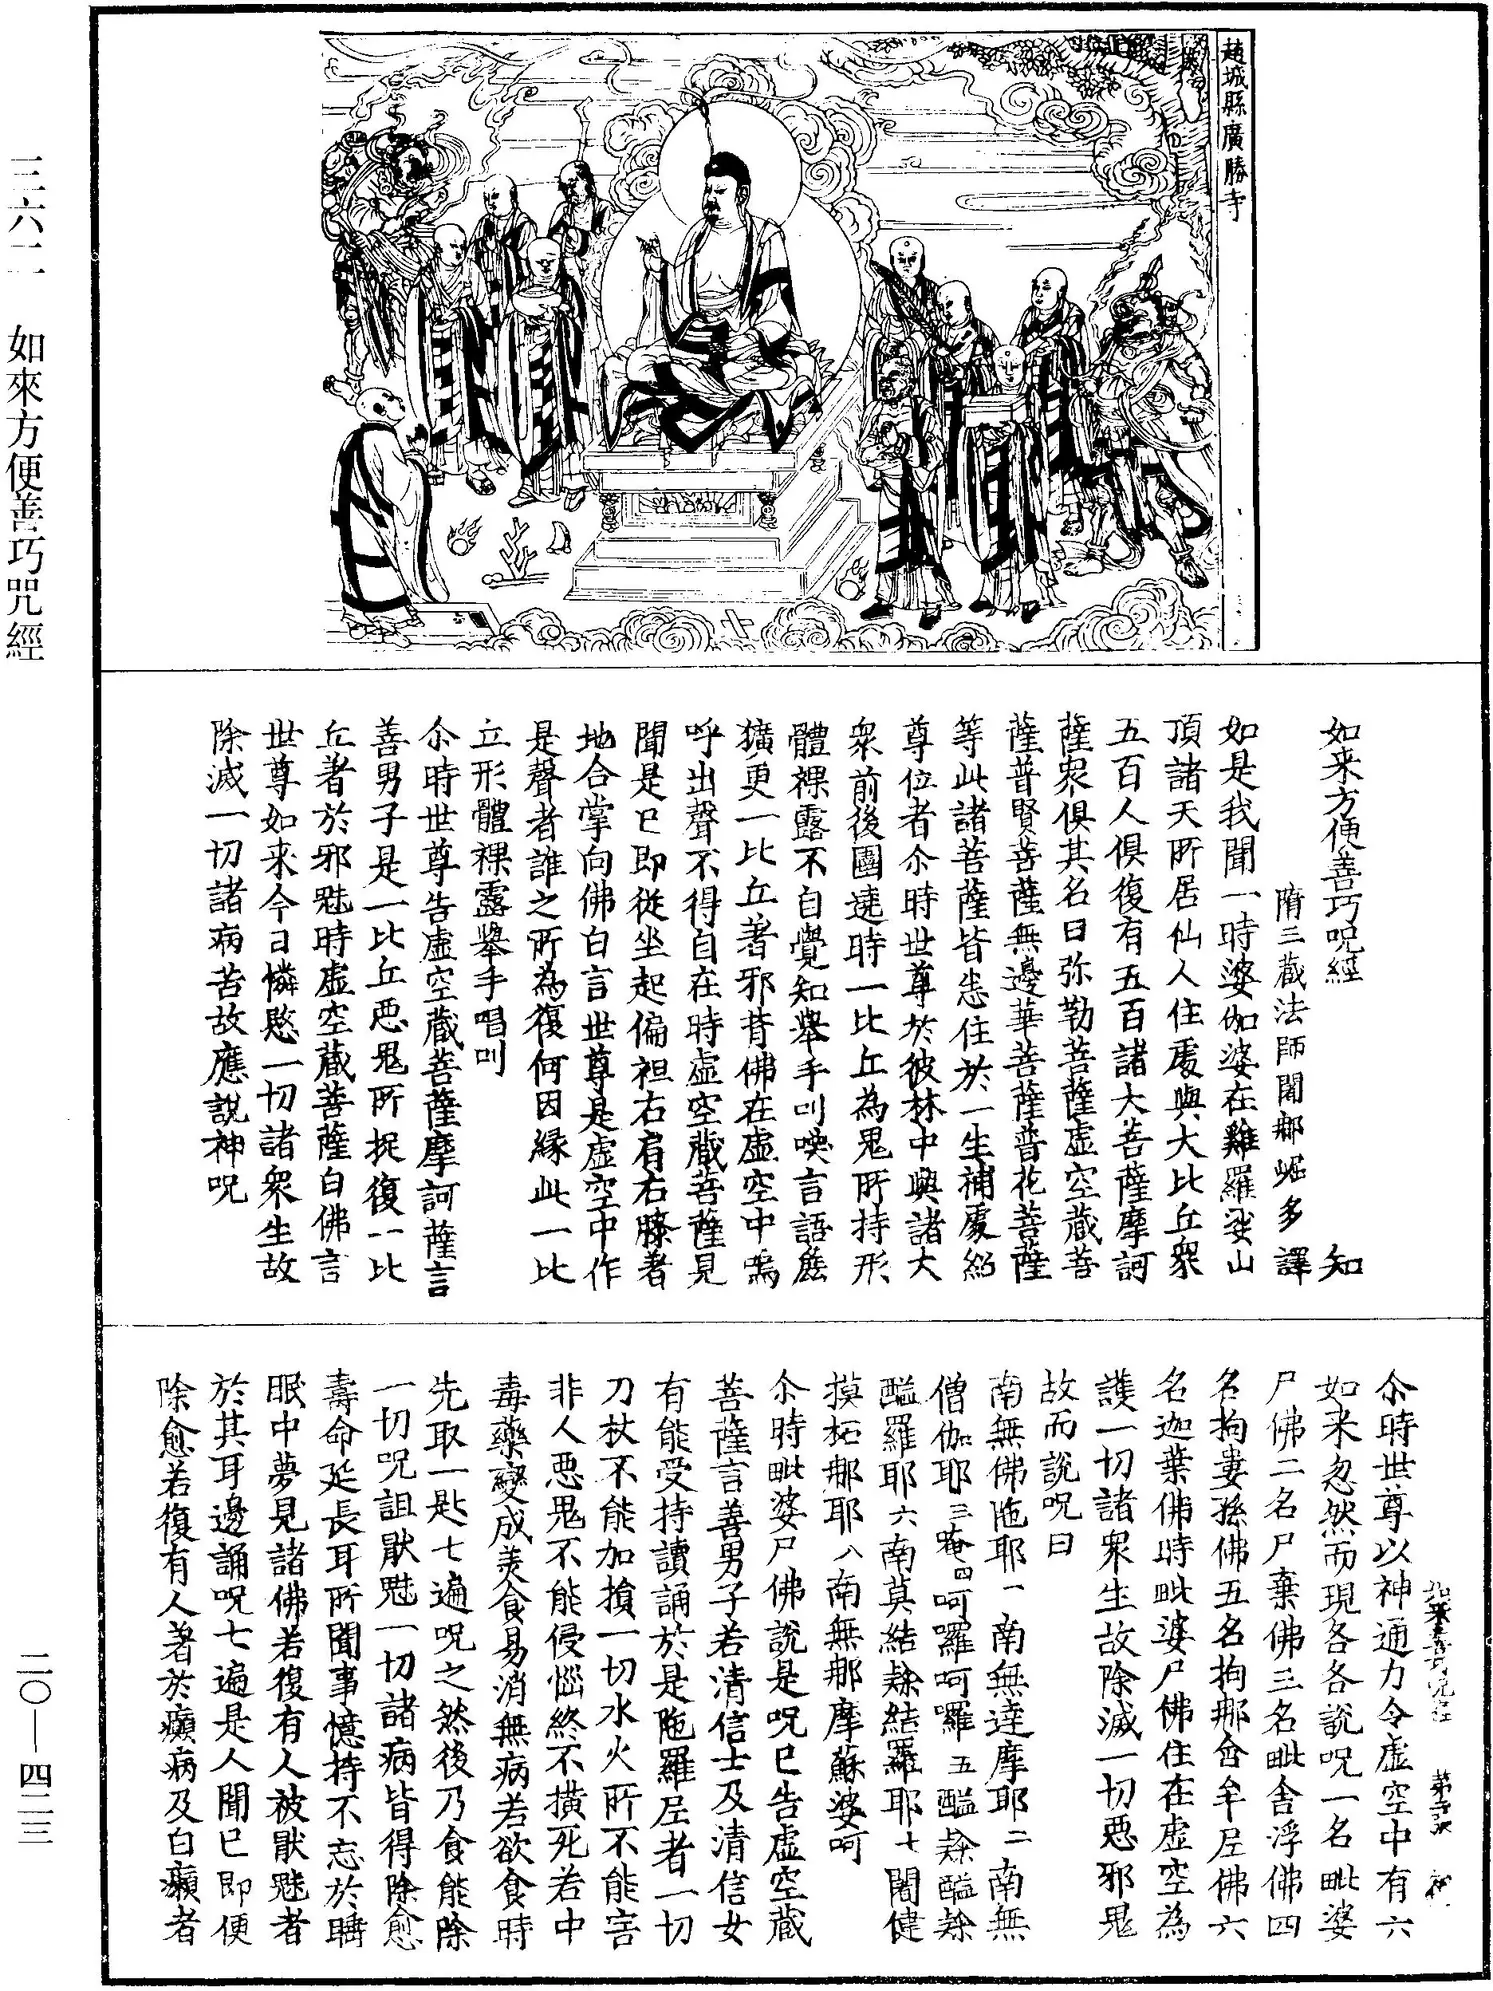 三六二 如來方便善巧咒經
二〇—四二三
趙城縣廣勝寺
如来方便善巧呪經 知
隋三藏法師闍那崛多譯
如是我聞一時婆伽婆在雞羅娑山
頂諸天所居仙人住處與大比丘衆
五百人俱復有五百諸大菩薩摩訶
薩衆俱其名曰弥勒菩薩虚空藏菩
薩普賢菩薩無邊華菩薩普花菩薩
等此諸菩薩皆悉住於一生補處紹
尊位者尒時世尊於彼林中與諸大
衆前後圍遶時一比丘為鬼所持形
體裸露不自覺知舉手叫喚言語麁
獷更一比丘著邪背佛在虚空中嗚
呼出聲不得自在時虚空藏菩薩見
聞是已即從坐起偏袒右肩右膝著
地合掌向佛白言世尊是虚空中作
是聲者誰之所為復何因緣此一比
立形體裸露舉手唱叫
尒時世尊告虚空藏菩薩摩訶薩言
善男子是一比丘惡鬼所捉復一比
丘著於邪魅時虚空藏菩薩白佛言
世尊如来今日憐愍一切諸衆生故
除滅一切諸病苦故應說神呪
尒時世尊以神通力令虚空中有六
如来忽然而現各各說呪一名毗婆
尸佛二名尸棄佛三名毗舍浮佛四
名拘婁孫佛五名拘那含牟尼佛六
名迦葉佛時毗婆尸佛住在虚空為
護一切諸衆生故除滅一切惡邪鬼
故而說呪曰
南無佛陁耶一南無達摩耶二南無
僧伽耶三唵四呵囉呵囉五醯除醯除
醯羅耶六南莫結除結羅耶七闍健
摸柘那耶八南無那摩蘇婆呵
尒時毗婆尸佛說是呪已告虚空藏
菩薩言善男子若清信士及清信女
有能受持讀誦於是陁羅尼者一切
刀杖不能加損一切水火所不能害
非人惡鬼不能侵惱終不撗死若中
毒藥變成美食易消無病若欲食時
先取一匙七遍呪之然後乃食能除
一切呪詛厭魅一切諸病皆得除愈
壽命延長耳所聞事憶持不忘於睡
眠中夢見諸佛若復有人被厭魅者
於其耳邊誦呪七遍是人聞已即便
除愈若復有人著於癩病及白癩者